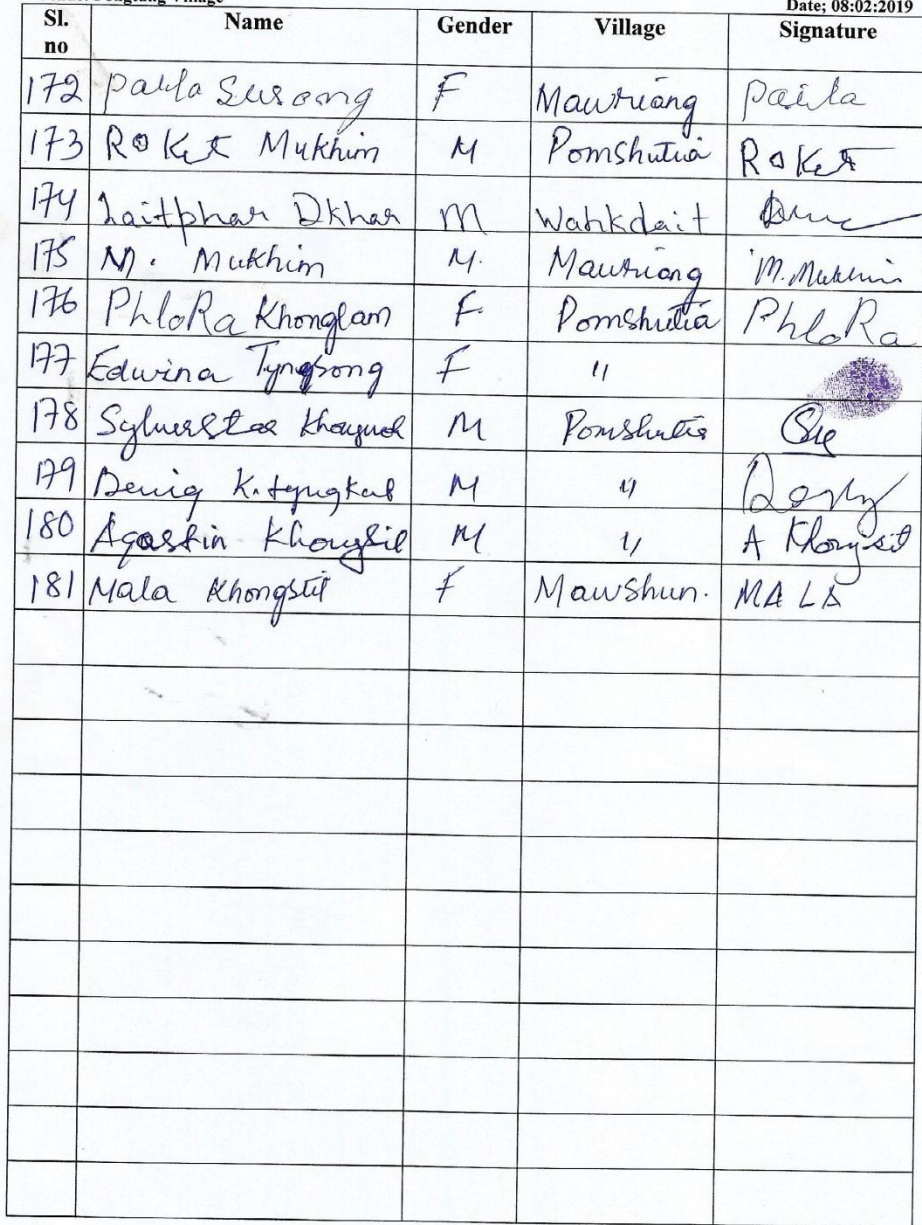 Village
Date; 08:02:2019
Sl. no Name Gender Village Signature
172 Paula Susong F Mawriang Paila
173 RoKet Mukhim M Pomshutia RoKet
174 Laitphar Dkhar M Wahkdait
175 M. Mukhim M. Mawriang M. Mukhim
176 PhloRa Khonglam F. Pomshutia PhloRa
177 Edwina Tyngsong F "
178 Sylverstar M Pomshutia
179 Denig K. tyngkat M "
180 Agastin Khongsit M " A Khongsit
181 Mala Khongstit F Mawshun. MALA